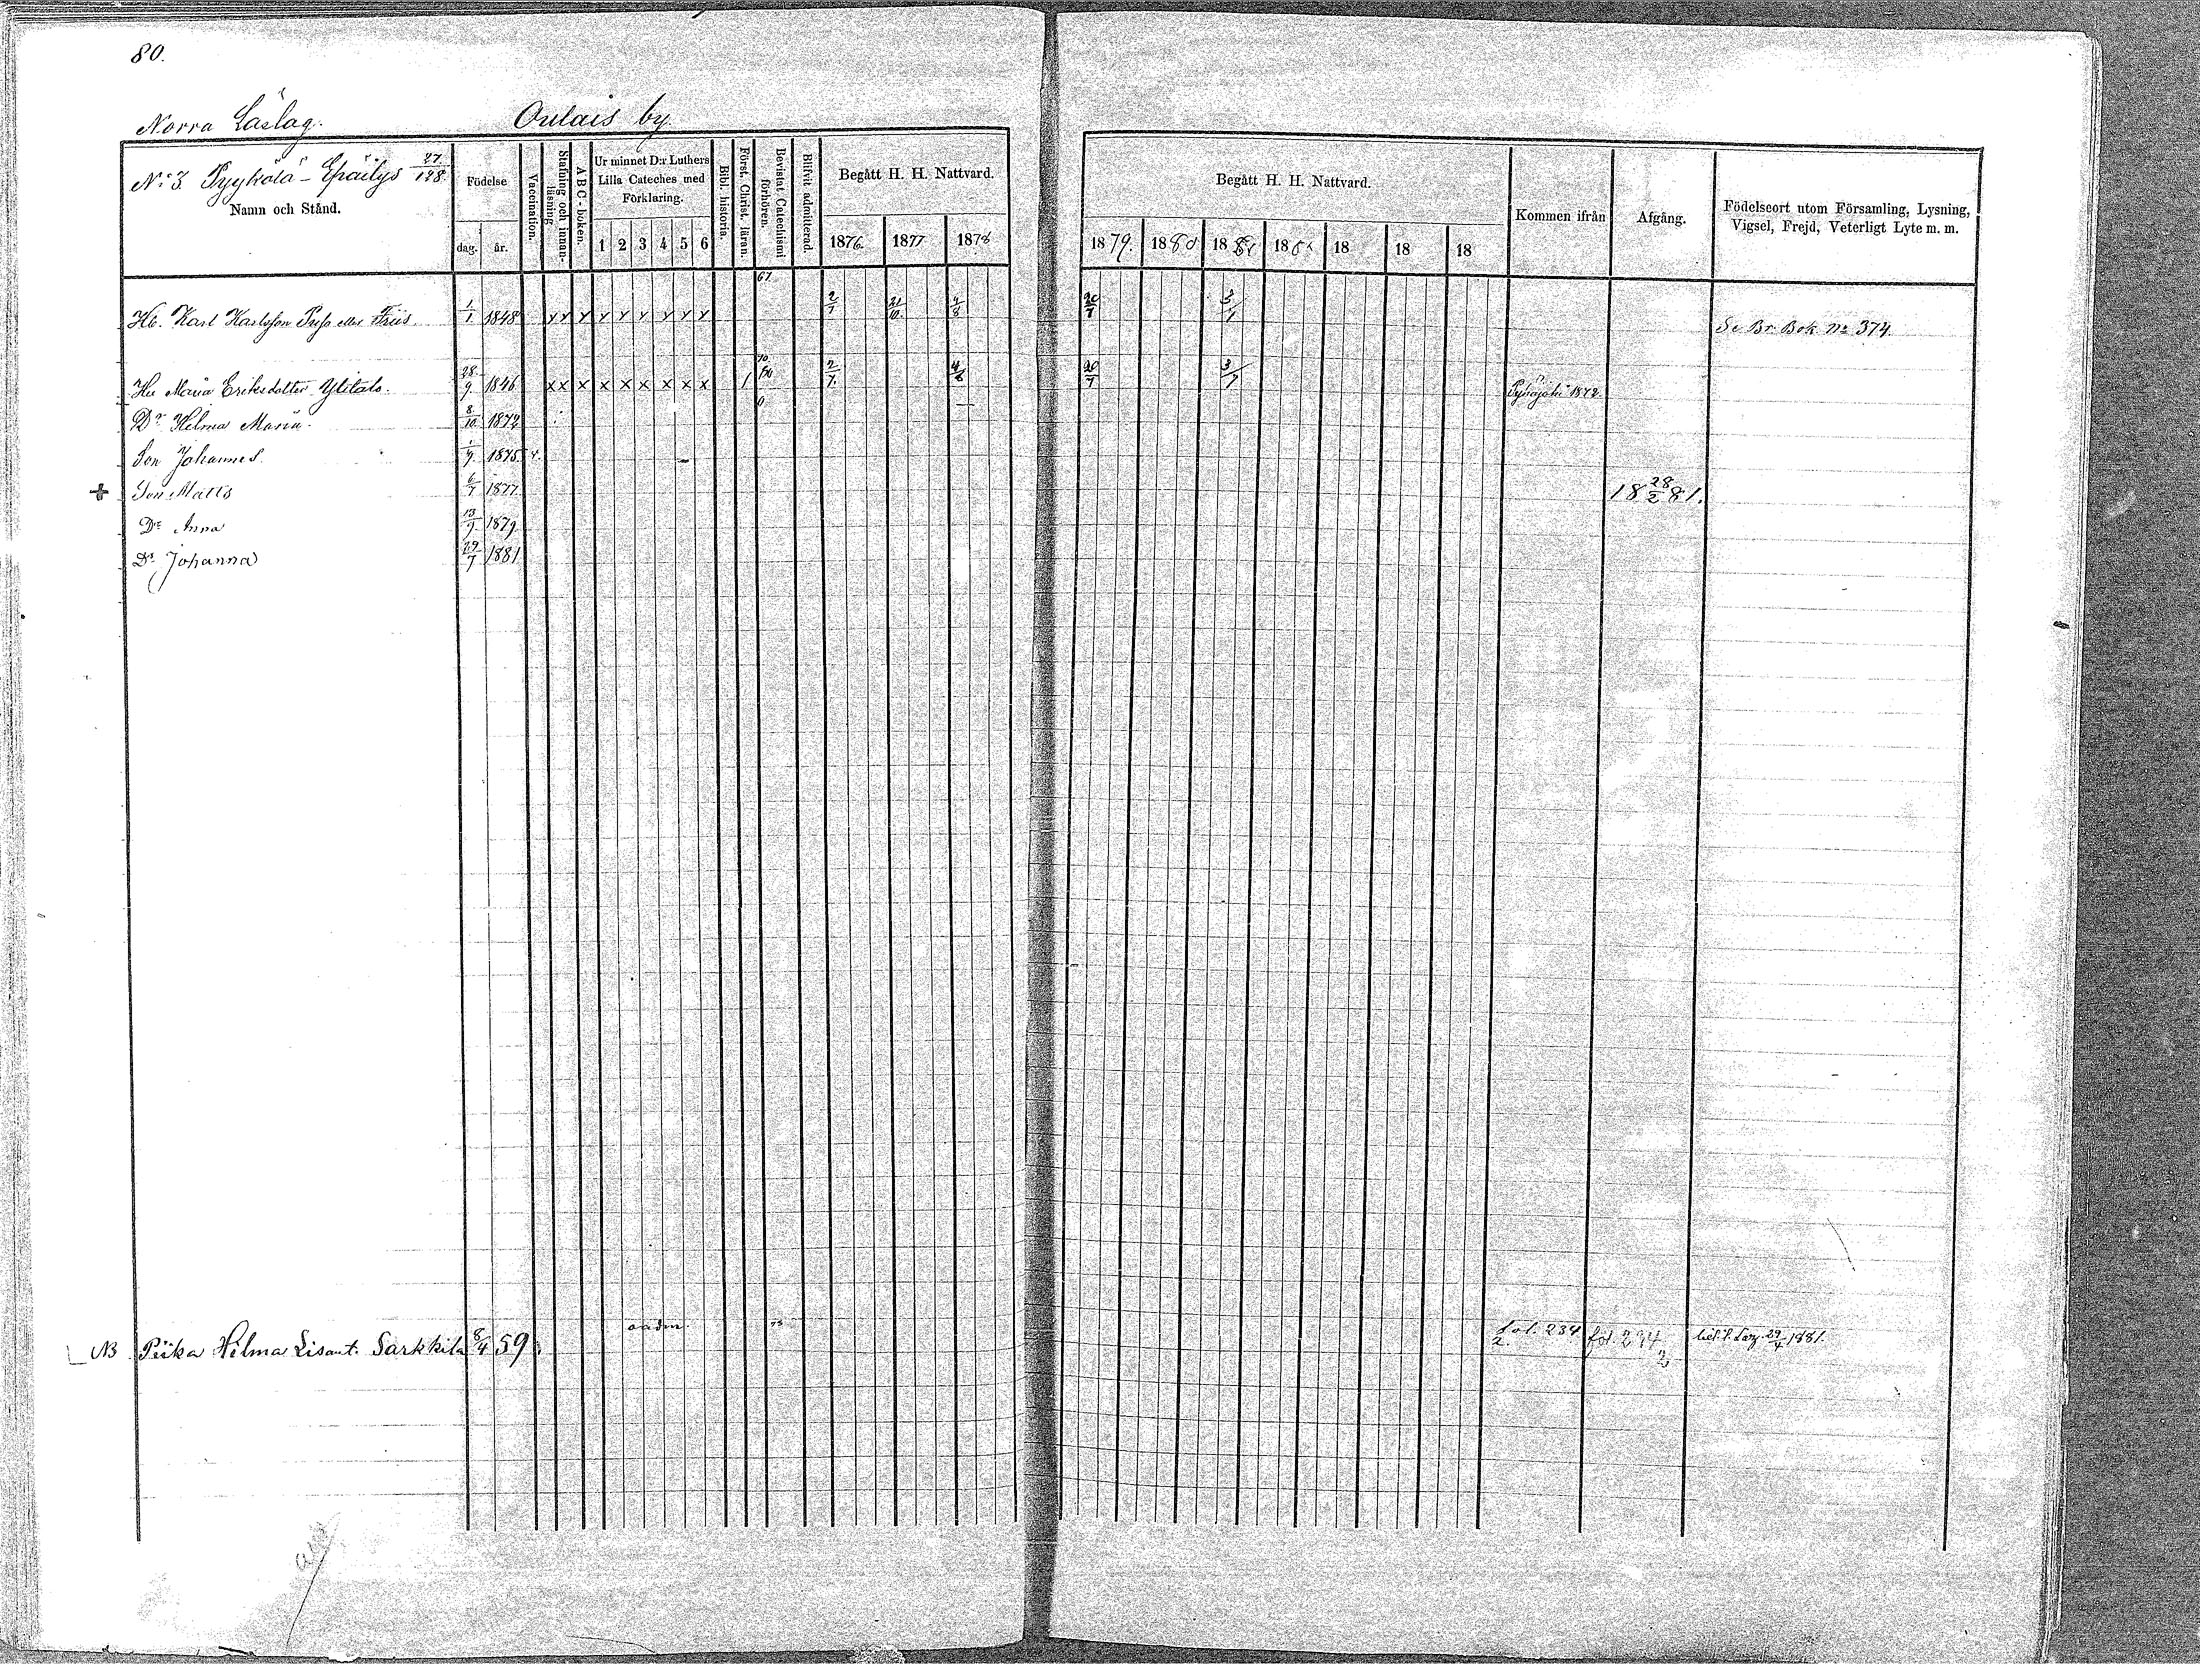 80.
Norra Läslag. Oulais by
No 3 Pyykölä - Epäilys 27/128
Namn och Stånd.
Födelse
dag. år.
Vaccination.
Stafning och innan-läsning
ABC-boken.
Ur minnet D:r Luthers Lilla Cateches med Förklaring.
1 2 3 4 5 6
Bibl. historia.
Först. Christ. läran.
Bevistat Catechismi förhören.
Blifvit admitterad
Begått H. H. Nattvard.
1876. 1877 1878
Begått H. H. Nattvard.
1879. 1880 1881 18 18 18 18
Kommen ifrån
Afgång.
Födelseort utom Församling, Lysning, Vigsel, Frejd, Veterligt Lyte m. m.
67
Karl Karlsson eller Friis. 1/1 1848 2/7 21/10 4/8 20/7 3/7 Se Br. Bok No 374.
70
Hu Maria Eriksdotter Ylitalo. 28/9 1846 x x x x x x x x x 1 2/7 4/8 20/7 3/7 Pyhäjoki 1872
Dr Helma Maria. 8/10 1872
Son Johannes. 1/9 1875
+ Son Matts 6/7 1877 18 28/2 81.
Dr Anna 13/9 1879
Dr Johanna 29/7 1881
NB Piika Hilma Lisant. Sarkkila 8/4 59 oadm. 75 fol. 234 2. fol 234 2 29/4 1881.